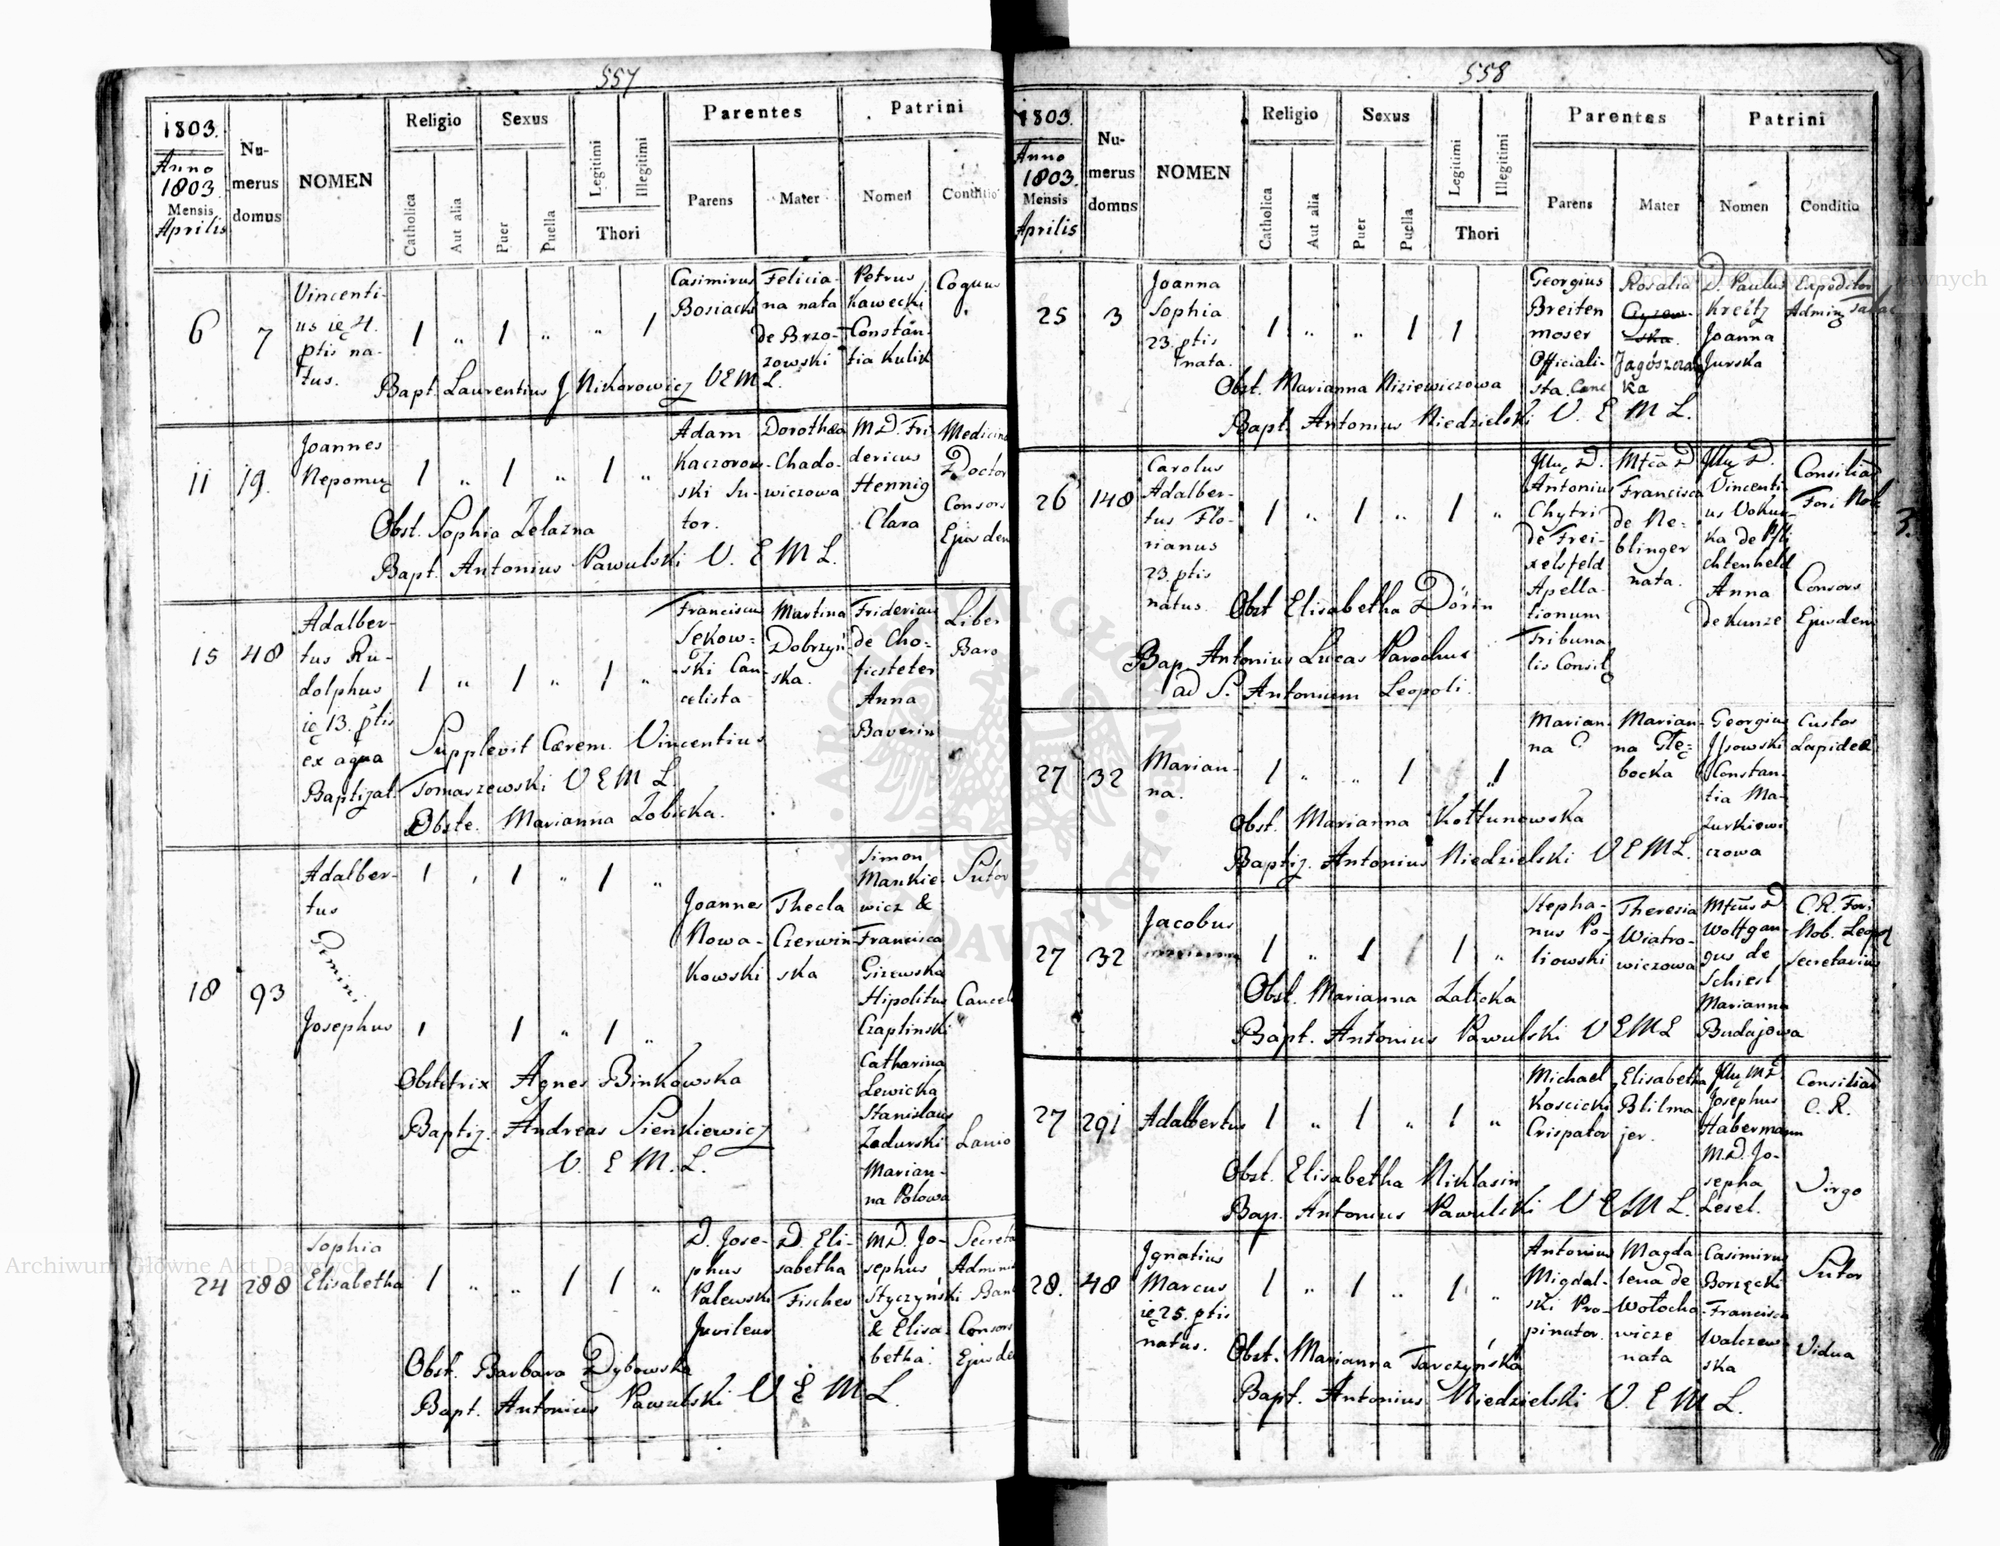 557
1803.
Anno
1803.
Mensis
Aprilis
Numerus
domus
NOMEN
Religio
Catholica
Aut alia
Sexus
Puer
Puella
Legitimi
Illegitimi
Thori
Parentes
Parens
Mater
Patrini
Nomen
Conditio
6
7
Vincenti-
us
ptis na-
tus.
1 „ 1 „ „ 1
Casimirus
Bosiacki
Felicia-
na nata
de Brzo-
zowski
Petrus
Kawecki
Constan-
tia Kulik
Coquus
Bapt. Laurentius J Nikorowicz V E M L.
11
19.
Joannes
Nepomuc
1 „ 1 „ 1 „
Adam
Kaczorow-
ski Su-
tor.
Dorothea
Chado-
wiczowa
M.D. Fri-
dericus
Hennig
Clara
Medicina
Doctor
Consors
Ejusdem
Obst. Sophia Zelazna
Bapt. Antonius Pawulski V. E M L.
15
48
Adalber-
tus Ru-
dolphus
ie 13. ptis
ex aqua
Baptizat.
1 „ 1 „ 1 „
Franciscus
Sekow-
ski Can-
celista
Martina
Dobrzyń-
ska.
Fridericus
de Cho-
ficsteter
Anna
Baverin
Liber
Baro
Supplevit Cærem. Vincentius
Tomaszewski V E M L
Obste. Marianna Zobicka.
18
93
Adalber-
tus
Gemini
Josephus
1 , 1 „ 1 „
1 1 „ 1 „
Joannes
Nowa-
kowski
Thecla
Czerwin-
ska
Simon
Mankie-
wicz &
Francisca
Gizewska
Hipolitus
Czaplinski
Catharina
Lewicka
Stanislaus
Zadurski
Marian-
na Polowa
Sutor
Cancel
Lanio
Obstetrix Agnes Binkowska
Baptiz. Andreas Sienkiewicz
V. E M. L.
24
288
Sophia
Elisabetha
1 „ „ 1 1 „
D. Jose-
phus
Palewski
Juvileus
D. Eli-
sabetha
Fischer
M.D. Jo-
sephus
Styczyński
& Elisa-
betha.
Secreta
Adminis
Ban
Consors
Ejusde
Obst. Barbara Dybowska
Bapt. Antonius Pawulski V E M L.
558
1803.
Anno
1803.
Mensis
Aprilis
Numerus
domus
NOMEN
Religio
Catholica
Aut alia
Sexus
Puer
Puella
Legitimi
Illegitimi
Thori
Parentes
Parens
Mater
Patrini
Nomen
Conditio
25
3
Joanna
Sophia
23. ptis
nata.
1 „ „ 1 1
Georgius
Breiten
moser
Officiali-
sta Canc
Rosalia
Jagoszczaw
ka
D. Paulus
Kreitz
Joanna
Jurska
Expeditor
Obst. Marianna Niziewiczowa
Bapt. Antonius Niedzielski V. E M L.
26
148
Carolus
Adalber-
tus Flo-
rianus
23. ptis
natus.
1 „ 1 „ 1 „
Antonius
Chytri
de Frei-
xelsfeld
Apella-
tionum
Tribuna
lis Consil
Francisca
de Ne-
blinger
nata.
Vincenti-
us Vokun
ka de
chtenheld
Anna
de Kunze
Consiliar
Fori Nob
Consors
Ejusdem
Obst Elisabetha Dörin
Bap. Antonius Lucas Parochus
ad S. Antonium Leopoli.
3.
27
32
Marian-
na.
1 „ „ 1 1
Marian
na ?
Marian-
na Głę-
bocka
Georgius
Constan-
tia Ma-
zurkiewi
czowa
Custos
Lapidea
Obst. Marianna Kottunowska
Baptiz. Antonius Niedzielski V E M L.
27
32
Jacobus
1 „ 1 1 „
Stepha-
nus Po-
liowski
Theresia
Wiatro-
wiczowa
Wolfgan-
gus de
Schiesl
Marianna
Budajowa
C.R. Fori
Nob. Leopol
Secretarius
Obst. Marianna Zalicka
Bapt. Antonius Pawulski V E M L
27
291
Adalbertus
1 „ 1 „ 1 „
Michael
Koscicki
Crispator
Elisabetha
Blilma-
jer.
Josephus
Habermann
M.D. Jo-
sepha
Lesel.
Consiliar
C. R.
Virgo
Obst. Elisabetha Niklasin
Bap. Antonius Pawulski V E M L.
28.
48
Ignatius
Marcus
ie 25. ptis
natus.
1 „ 1 „ 1 „
Antonius
Migdal-
ski Pro-
pinator.
Magda
lena de
Wołocho-
wicze
nata
Casimirus
Borzęcki
Francisca
Walczew-
ska
Sutor
Vidua
Obst. Marianna Tarczyńska
Bapt. Antonius Niedzielski V. E M L.
Archiwum Główne Akt Dawnych
Archiwum Główne Akt Dawnych
ARCHIWUM GŁÓWNE AKT DAWNYCH